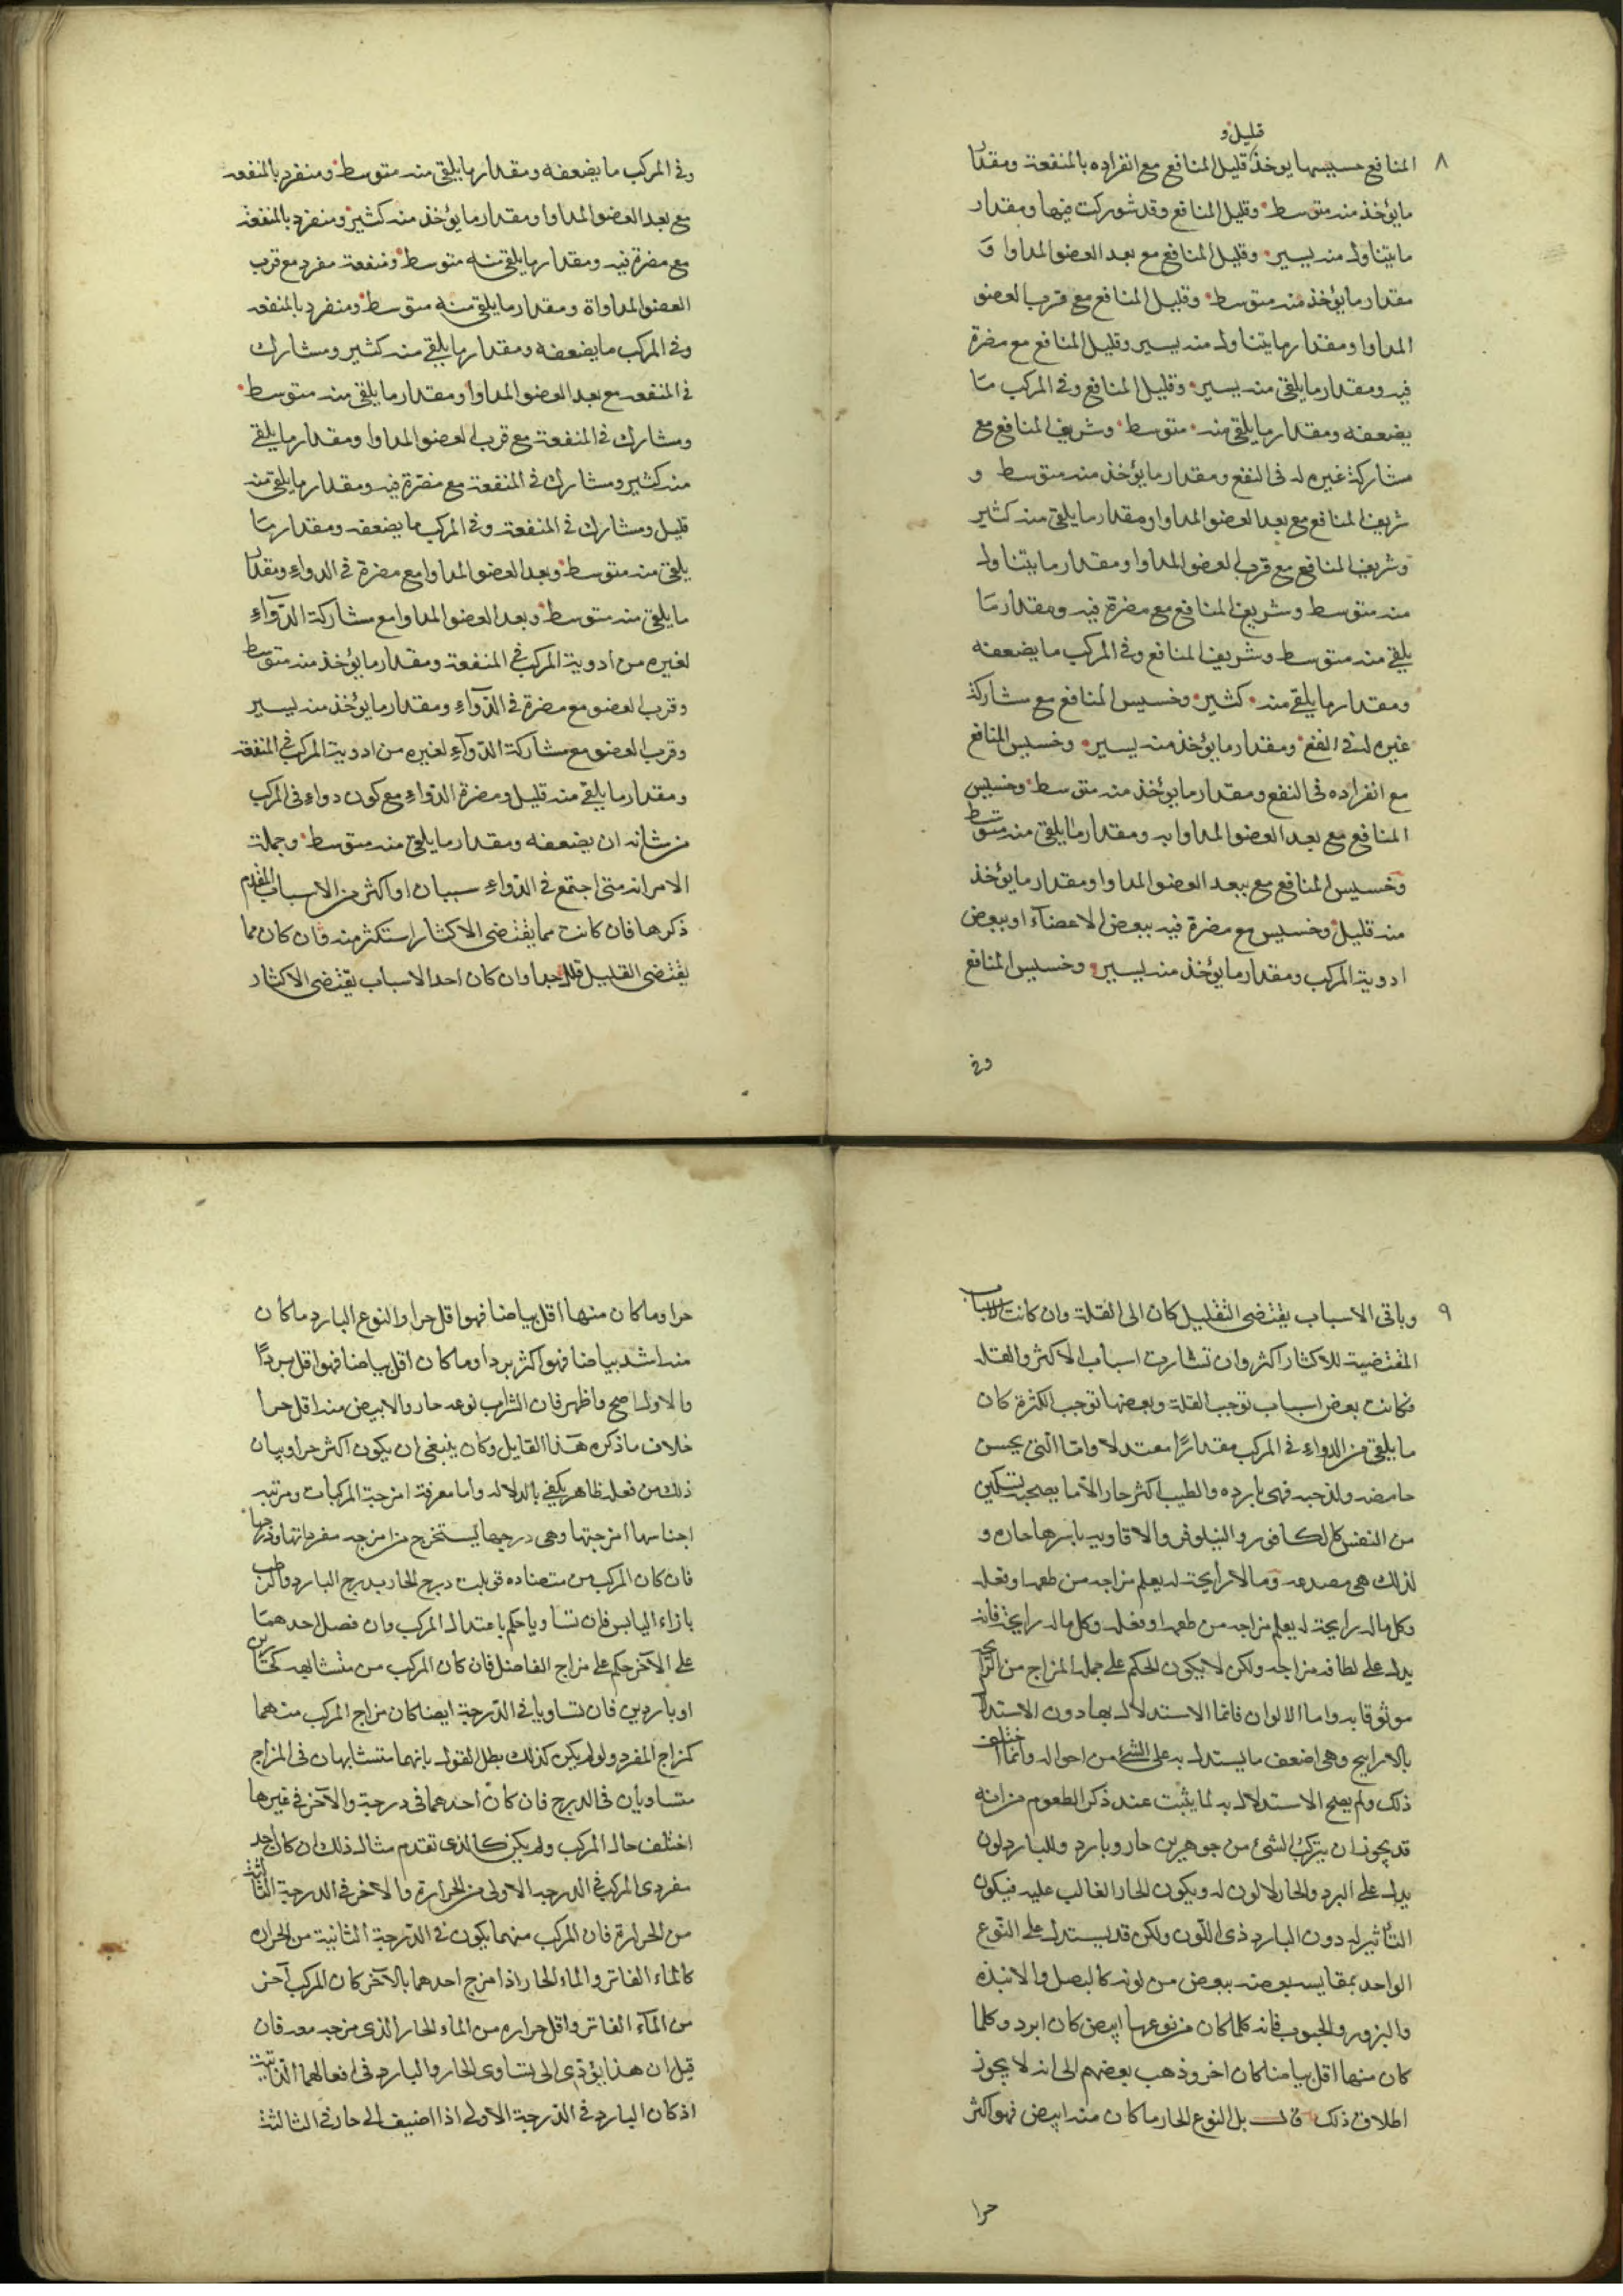 ٨
قليل و
المنافع خسيسها يوخذ قليل المنافع مع انفراده بالمنفعة ومقدار
مايؤخذ منه متوسط وقليل المنافع وقد شوركت فيها ومقدار
مايتناول منه يسير وقليل المنافع مع بعد العضو المداوا و
مقدار مايؤخذ منه متوسط وقليل المنافع مع قرب العضو
المداوا ومقدار مايتناول منه يسير وقليل المنافع مع مضرة
فيه ومقدار مايلقى منه يسير وقليل المنافع وفى المركب ما
يضعفه ومقدار مايلقى منه متوسط وشريف المنافع مع
مشاركة غيره له فى النفع ومقدار مايؤخذ منه متوسط و
شريف المنافع مع بعد العضو المداوا ومقدار مايلقى منه كثير
وشريف المنافع مع قرب العضو المداوا ومقدار مايتناول
منه متوسط وشريف المنافع مع مضرة فيه ومقدار ما
يلقى منه متوسط وشريف المنافع وفى المركب مايضعفه
ومقدار مايلقى منه كثير وخسيس المنافع مع مشاركة
غيره له فى النفع ومقدار مايؤخذ منه يسير وخسيس المنافع
مع انفراده فى النفع ومقدار مايؤخذ منه متوسط وخسيس
المنافع مع بعد العضو المداوا به ومقدار مايلقى منه متوسط
وخسيس المنافع مع ببعد العضو المداوا ومقدار مايؤخذ
منه قليل وخسيس مع مضرة فيه ببعض الاعضاء او ببعض
ادوية المركب ومقدار مايؤخذ منه يسير وخسيس المنافع
وفى
وفى المركب مايضعفه ومقدار مايلقى منه متوسط ومنفرد بالمنفعه
مع بعد العضو المداوا ومقدار مايؤخذ منه كثير ومنفرد بالمنفعة
مع مضرة فيه ومقدار مايلقى منه متوسط ومنفعة مفرد مع قرب
العضو المداواة ومقدار مايلقى منه متوسط ومنفرد بالمنفعه
وفى المركب مايضعفه ومقدار مايلقى منه كثير ومشارك
فى المنفعه مع بعد العضو المداوا ومقدار مايلقى منه متوسط
ومشارك فى المنفعة مع قرب العضو المداوا ومقدار مايلقى
منه كثير ومشارك فى المنفعة مع مضرة فيه ومقدار مايلقى منه
قليل ومشارك فى المنفعة وفى المركب مايضعفه ومقدار ما
يلقى منه متوسط وبعد العضو المداوا مع مضرة فى الدواء ومقدار
مايلقى منه متوسط وبعد العضو المداوا مع مشاركة الدواء
لغيره من ادوية المركب فى المنفعة ومقدار مايؤخذ منه متوسط
وقرب العضو مع مضرة فى الدواء ومقدار مايؤخذ منه يسير
وقرب العضو مع مشاركة الدواء لغيره من ادوية المركب فى المنفعة
ومقدار مايلقى منه قليل ومضرة الدواء مع كون دواء فى المركب
من شانه ان يضعفه ومقدار مايلقى منه متوسط وجملة
الامر انه متى اجتمع فى الدواء سببان او اكثر من الاسباب المقدم
ذكرها فان كانت مما يقتضى الاكثار استكثر منه وان كان مما
يقتضى القليل قلل جدا وان كان احد الاسباب يقتضى الاكثار
٩
وباقى الاسباب يقتضى التقليل كان الى القلة وان كانت الاسباب
المقتضية للاكثار اكثر وان تشارت اسباب الاكثر والقله
فكانت بعض اسباب توجب القلة وبعضها توجب الكثرة كان
مايلقى من الدواء فى المركب مقدارا معتدلا واما التى يحس
حامضه ولذحبه فهى باردة والطيب اكثر حار الا ما يصحبه تسكين
من النفس كالكافور والنيلوفر والاقاويه باسرها حاره و
لذلك هى مصدعه وما لا رايحة له يعلم مزاجه من طعمه او فعله
وكل ماله رايحة له يعلم مزاجه من طعمه او فعله وكل ماله رايحة فانه
يدل على لطافة مزاجه ولكن لايكون الحكم على جملة المزاج من الرايحة
موثوقا به واما الالوان فانما الاستدلال بها دون الاستدلال
بالارايح وهى اضعف مايستدل به على الشئ من احواله وانما اختلف
ذلك ولم يصح الاستدلال به لما يثبت عند ذكر الطعوم من انه
قد يجوز ان يتركب الشئ من جوهرين حار وبارد وللبارد لون
يدل على البرد والحار لا لون له ويكون الحار الغالب عليه فيكون
التأثير له دون البارد ذى اللون ولكن قد يستدل على النوع
الواحد بمقايسه بعضه ببعض من لونه كالبصل والانبذه
والبزور والحبوب فانه كلما كان من نوعها ابيض كان ابرد وكلما
كان منها اقل بياضا كان اخر وذهب بعضهم الى انه لا يجوز
اطلاق ذلك قال بل النوع الحار ما كان منه ابيض فهو اكثر
حرا
حرا وما كان منها اقل بياضا فهو اقل حرا والنوع البارد ما كان
منه اشد بياضا فهو اكثر بردا وما كان اقل بياضا فهو اقل بردا
والاول اصح واظهر فان الشراب نوعه حار والابيض منه اقل حرا
خلاف ماذكره هذا القايل وكان ينبغى ان يكون اكثر حرا وبيان
ذلك من فعله ظاهر يكفى بالدلاله واما معرفة امزجة المركبات ومرتبه
اجناسها امزجتها وهى درجها يستخرج من امزجه مفرداتها ودرجها
فان كان المركب من متضاده قوبلت درج الحار بدرج البارد والرطب
بازاء اليابس فان تساويا حكم باعتدال المركب وان فضل احدهما
على الآخر حكم على مزاج الفاضل فان كان المركب من متشابهه كحارين
او باردين فان تساويا فى الدرجة ايضا كان مزاج المركب منهما
كمزاج المفرد ولو لم يكن كذلك بطل القول بانهما متشابهان فى المزاج
متساويان فى الدرج فان كان احدهما فى درجة والآخر فى غيرها
اختلف حال المركب ولم يكن كالذى تقدم مثال ذلك ان كان احد
مفردى المركب فى الدرجه الاولى من الحرارة والاخر فى الدرجة الثالثة
من الحرارة فان المركب منهما يكون فى الدرجة الثانية من الحراره
كالماء الفاتر والماء الحار اذا مزج احدهما بالآخر كان المركب آخر
من الماء الفاتر واقل حراره من الماء الحار الذى مزجه معه فان
قيل ان هذا يؤدى الى تساوى الحار والبارد فى افعالهما الذاتية
اذ كان البارد فى الدرجة الاولى اذا اضيف الى حار فى الثالثة